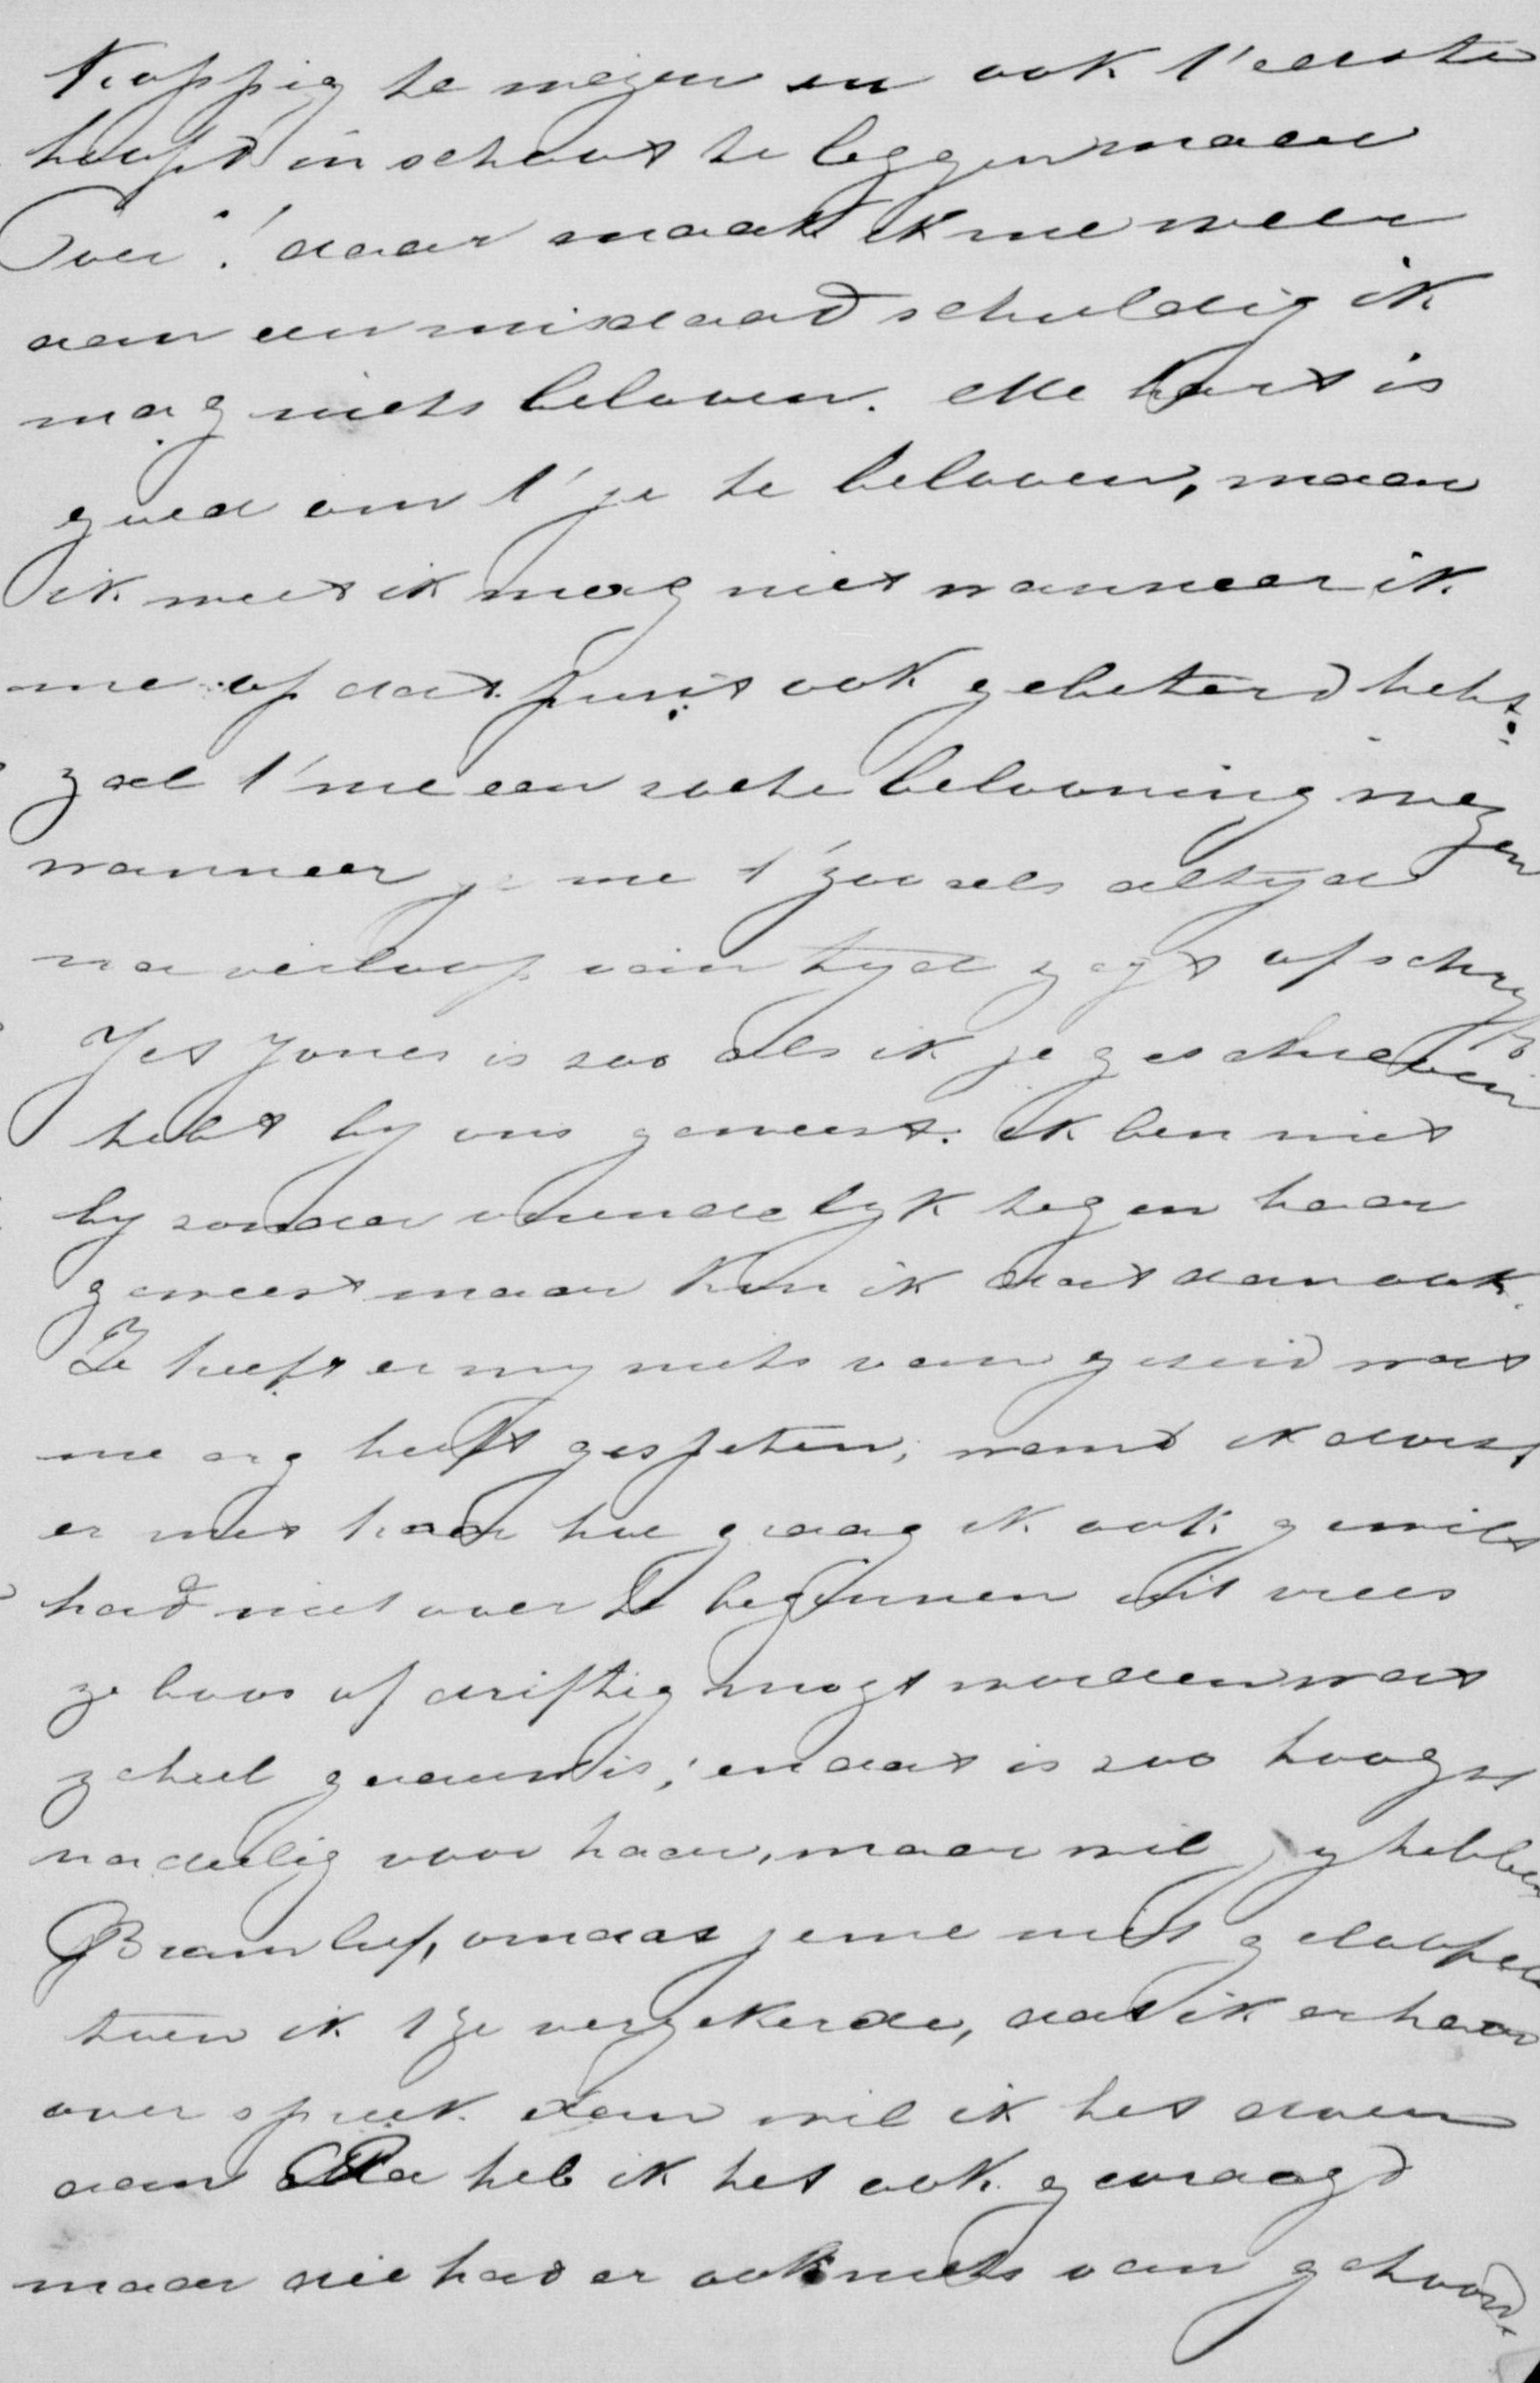 Koppig te wezen en ook t'eerste
hoofd in schoot te leggen maar
Over! daar maak ik me weer
aan een misdaad schuldig ik
mag niets beloven. Me hart is
goed om t' je te beloven, maar
ik weet ik mag niet wanneer ik
me op dat punt ook gebeterd hebt
zal t' me een zoete belooning wezen
wanneer je me t' zoo als altyd
na verloop van tyd zegt of schryft
Jet Jones is zoo als ik je geschreven
hebt by ons geweest. ik ben niet
byzonder vriendelyk tegen haar
geweest maar kon ik dat dan ook.
Ze heeft er my niets van gezeid wat
me erg heeft gespeten, want ik dorst
er met haar hoe graag ik ook gewilt
had niet over te beginnen uit vrees
ze boos of driftig mogt worden wat
ze heel gaauw is; en dat is zoo hoogst
nadeelig voor haar, maar wil jy hebben
Bram lief, omdat je me niet geloofde
toen ik t je verzekerde, dat ik er haar
over spreek dan wil ik het doen
aan Pa heb ik het ook gevraagd
maar die had er ook niets van gehoord.